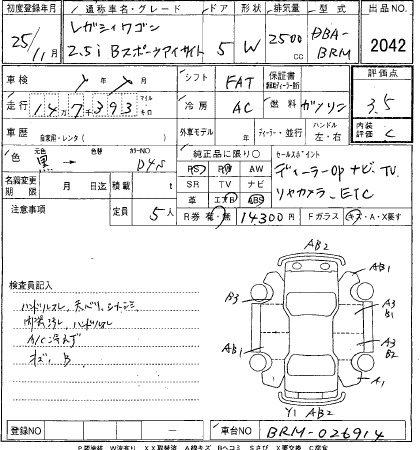 初度登録年月 通称車名・グレード ドア 形状 排気量 型式
25/11月 レガシィワゴン 2.5i Bスポーツアイサイト 5 W 2500cc DBA-BRM 2042
車検 年 月 シフト FAT 保証書 評価点
走行 147,393 マイル キロ 冷房 AC 燃料 ガソリン 3.5
車歴 自家用・レンタ( ) 外車モデル 年 ディーラー・並行 ハンドル 左・右 内装評価 C
色 元色 黒 → 色替 カラーNO D4S 純正品に限り○ セールスポイント
PS PW AW ディーラーOP ナビ、TV、
名義変更期限 月 日迄 積載 t SR TV ナビ リヤカメラ、ETC
革 エアB ABS
注意事項 定員 5人 R券 有・無 14300円 Fガラス キズ・A・X要す
検査員記入
ハンドルスレ、天ベリ、シートシミ
内張コスレ、ハンドルスレ
A/C冷えず
キズ、B
AB2
AB1
B3
A3
B1
AB1
A3
B2
A1
Y1 AB2
登録NO 車台NO BRM-026914
P要塗装 W波有り XX取替済 A線キズ Bヘコミ Sさび X要交換 C腐食